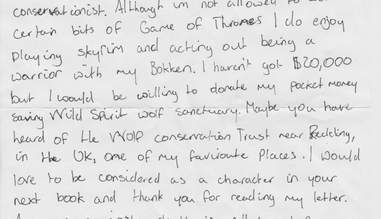 conservationist. Although im not allowed to
certain bits of Game of Thrones I do enjoy
playing skyrim and acting out being a
warrior with my Bokken. I haven't got $20,000
but I would be willing to donate my pocket money
saving Wild Spirit wolf sanctuary. Maybe you have
heard of the Wolf conservation Trust near Reading,
in the UK, one of my favirote Places. I would
love to be considered as a character in your
next book and thank you for reading my letter.